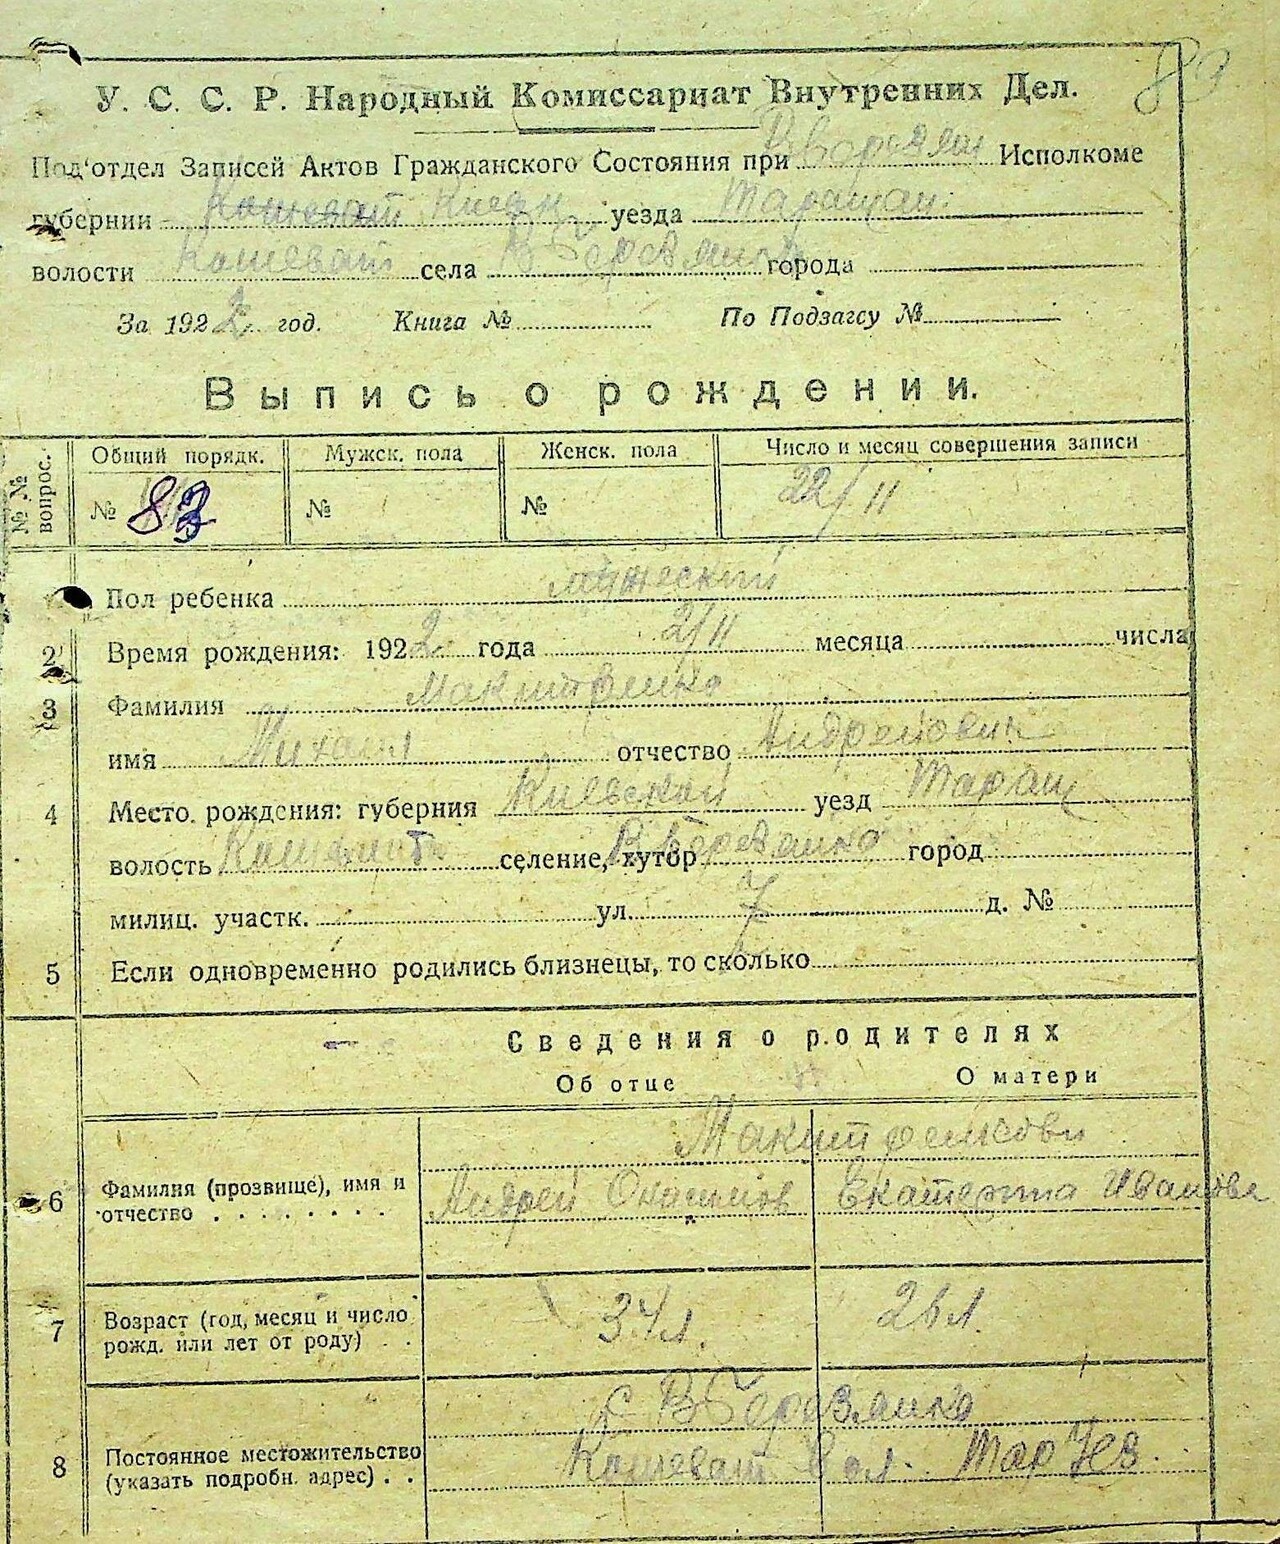 89
У. С. С. Р. Народный Комиссариат Внутренних Дел.
Под'отдел Записей Актов Гражданского Состояния при Исполкоме
губернии Кошеват Киевск уезда Таращан.
волости Кошеват села В Березянка города
За 1922 год. Книга № По Подзагсу №
Выпись о рождении.
№№ вопрос. Общий порядк. Мужск. пола Женск. пола Число и месяц совершения записи
№ 83 № № 22/II
Пол ребенка мужеский
2 Время рождения: 1922 года 2/II месяца числа
3 Фамилия Макитренко
имя Михаил отчество Андреевич
4 Место рождения: губерния Киевской уезд Таращ
волость селение, хутор В Березянка город
милиц. участк. ул. д. №
5 Если одновременно родились близнецы, то сколько
Сведения о родителях
Об отце О матери
Макитренкови
6 Фамилия (прозвище), имя и отчество . . . . . . . . Андрей Екатерина Иванова
7 Возраст (год, месяц и число рожд. или лет от роду) . . 34 л. 26 л.
с В Березянка
8 Постоянное местожительство (указать подробн. адрес) . . Кошеват вол. Тар Уез.